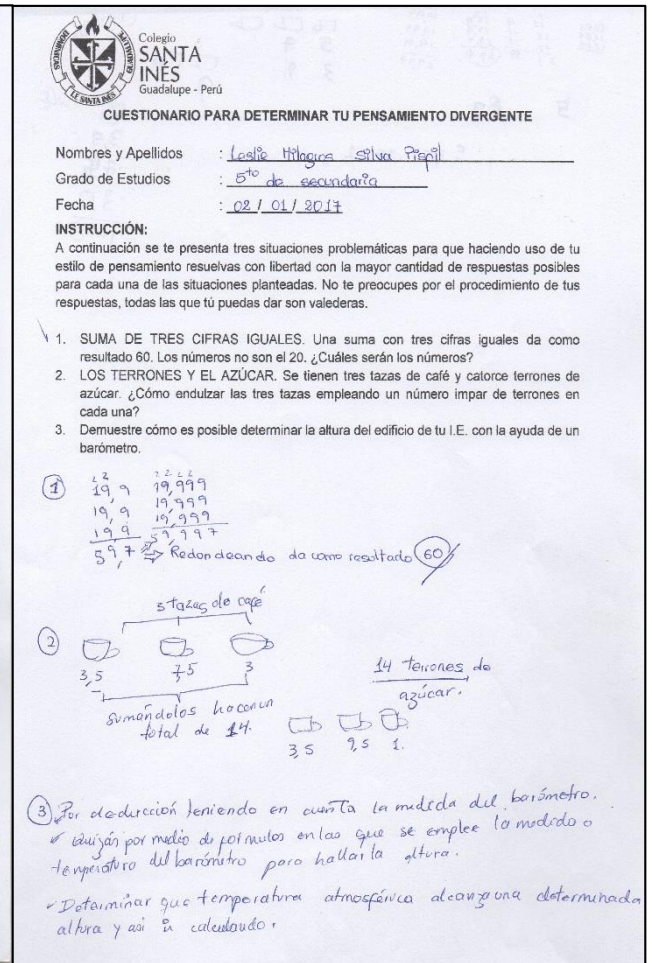 Colegio
SANTA
INÉS
Guadalupe - Perú
DOMINICAS
I.E SANTA INÉS
CUESTIONARIO PARA DETERMINAR TU PENSAMIENTO DIVERGENTE
Nombres y Apellidos : Leslie Milagros Silva
Grado de Estudios : 5to de secundaria
Fecha : 02 / 01 / 2017
INSTRUCCIÓN:
A continuación se te presenta tres situaciones problemáticas para que haciendo uso de tu
estilo de pensamiento resuelvas con libertad con la mayor cantidad de respuestas posibles
para cada una de las situaciones planteadas. No te preocupes por el procedimiento de tus
respuestas, todas las que tú puedas dar son valederas.
1. SUMA DE TRES CIFRAS IGUALES. Una suma con tres cifras iguales da como
resultado 60. Los números no son el 20. ¿Cuáles serán los números?
2. LOS TERRONES Y EL AZÚCAR. Se tienen tres tazas de café y catorce terrones de
azúcar. ¿Cómo endulzar las tres tazas empleando un número impar de terrones en
cada una?
3. Demuestre cómo es posible determinar la altura del edificio de tu I.E. con la ayuda de un
barómetro.
2 2 2 2 2 2
1 19,9 19,999
19,9 19,999
19,9 19,999
59,7 59,997
⇒ Redondeando da como resultado 60
3 tazas de café
2
3,5 7,5 3
14 terrones de
azúcar.
sumándolos hacen un
total de 14.
3,5 9,5 1.
3 Por deducción teniendo en cuenta la medida del barómetro.
✓ Quizás por medio de fórmulas en las que se emplee la medida o
temperatura del barómetro para hallar la altura.
✓ Determinar que temperatura atmosférica alcanza una determinada
altura y asi ir calculando.